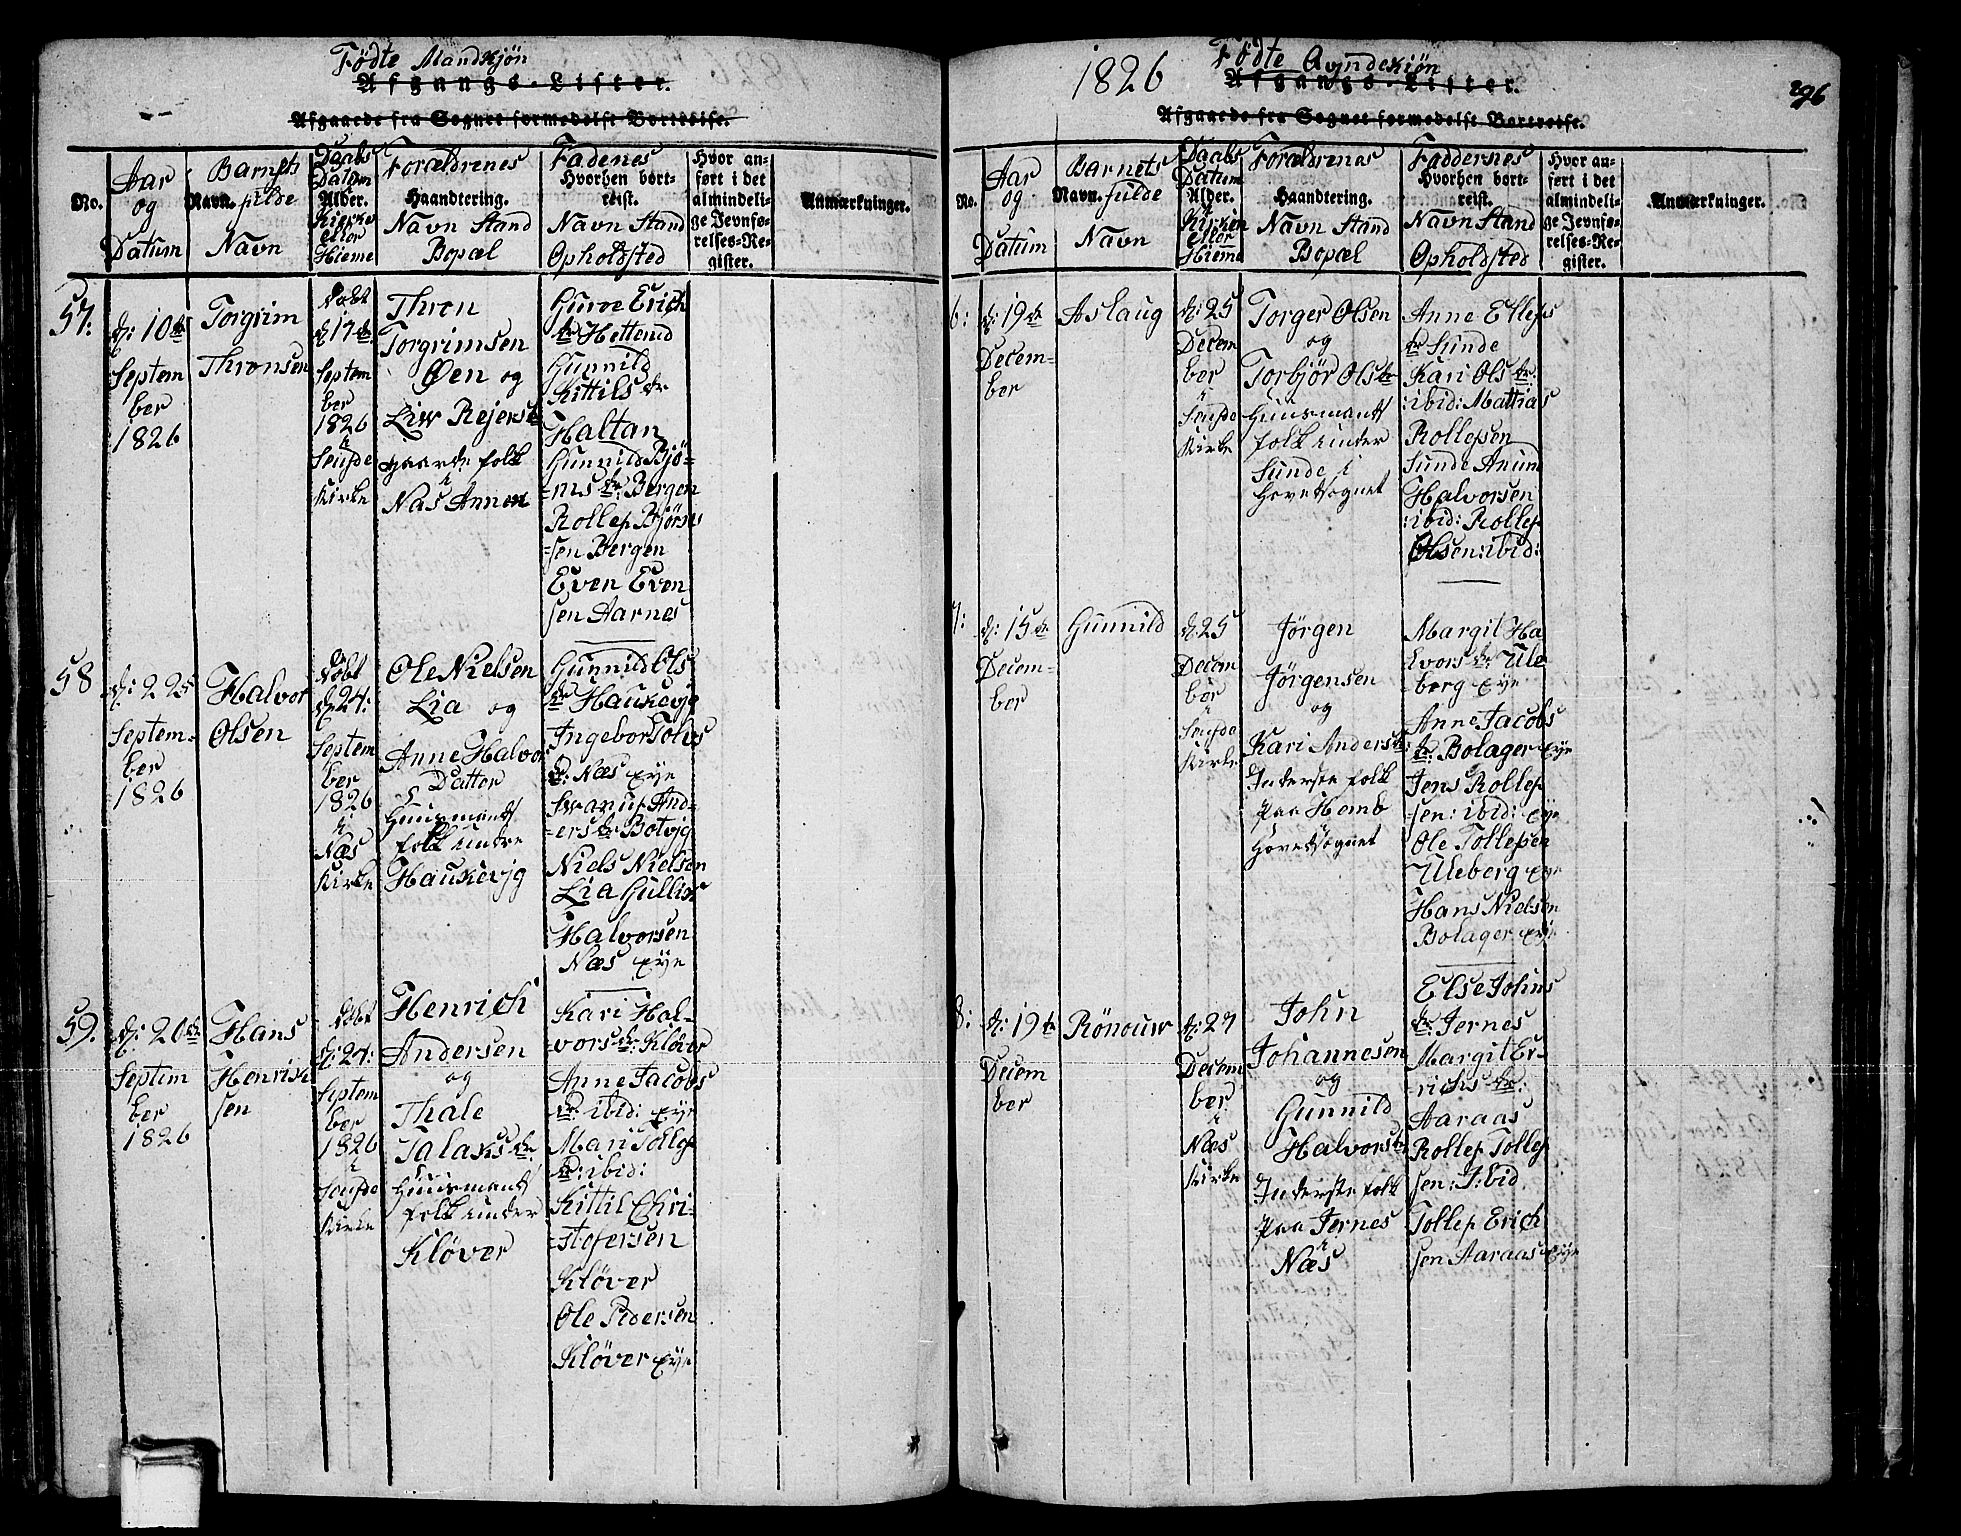 Fødte Mandkjön
Afgangs-Lister.
Afgaaede fra Sognet formedelst Bortreise.
No.
Aar
og
Datum
Barnets
Navn. fulde
Navn
Daabs
Datum
Alder.
Kirke
eller
Hieme
Forældrenes
Haandtering.
Navn Stand
Bopæl
Fadenes
Hvorhen bort-
reist.
Navn Stand
Opholdsted
Hvor an-
ført i det
almindeli-
ge Jevnfø-
relses-Re-
gister.
Anmærkninger.
57:
d: 10de
Septem
ber
1826
Torgrim
Thronsen
Døbt
d 17de
Septem
ber
1826
i
Soufde
Kirke
Thron
Torgrimsen
Øen og
Liw Rejers
gaarde folk
i
Næs Annen
Gurve Erich
dr Hettend
Gunnild
Kittils dr
Haltan
Gunnild Bjö-
=rns dr: Bergen
Rollef Bjørns
=sen Bergen
Even Even
sen Aarnes
58
d: 22
Septem=
ber
1826
Halvor
Olsen
Døbt
d 24:
Septem
ber
1826
i
Næs
Kirke
Ole Nielsen
Lia og
Anne Halvor
s Datter
Huusmands
folk undre
Haukevjg
Gunnild Ols
dr Haukevjg
Ingebor Tolvs
dr: Næs eye
Swanuf And-
=ers dr Botvjg
Niels Nielsen
Lia Gullik
Halvorsen
Næs eye
59.
d: 20de
Septem
ber
1826
Hans
Henrich
sen
Døbt
d: 24:
Septem
ber
1826
i
Soufde
Kirke
Henrich
Andersen
og
Thale
Talaks dr
Huusmands
folk under
Kløver
Kari Hal-
vors dr: Kløver
Anne Jacobs
dr ibid: eye
Mari Tollef
dr: ibid:
Kittil Chri-
=stofersen
Kløver
Ole Pedersen
Kløver eye
1826
Fødte Qvindekiøn
296
Afgangs-Lister.
Afgaaede fra Sognet formedelst Bortreise.
No.
Aar
og
Datum
Barnets
Navn. fulde
Navn
Daabs
Datum
Alder.
Kirken
eller
Hieme
Forældrenes
Haandtering.
Navn Stand
Bopæl
Faddernes
Hvorhen bort-
reist.
Navn Stand
Opholdsted
Hvor an-
ført i det
almindeli-
ge Jevnfø-
relses-Re-
gister.
Anmærkninger.
6:
d: 19de
Decem=
ber
Aslaug
d: 25
Decem
ber
i
Soufde
Kirke
Torger Olsen
og
Torbjör Olsdr
Huusmands
folk under
Sunde i
Hovetsognet
Anne Ellefs
dr Sunde
Kari Ols dr:
:ibid: Mattias
Rollefsen
Sunde Anun
Halvorsen
:ibid: Rollef
Olsen: ibid:
7:
d: 15de
Decem=
ber
Gunnild
d: 25
Decem
ber
i
Soufde
Kirke
Jörgen
Jörgensen
og
Kari Anders
Inderste folk
paa Homb
Hovetsognet
Margit Ha
lvors dr Ule
berg eye
Anne Jacobs
dr: Bolager eye
Jens Rollef
sen: ibid: eye
Ole Tollefsen
Uleberg eye
Hans Nielsen
Bolager eye
8:
d: 19de
Decem
ber
Rönouw
d: 27
Decem
ber
i
Næs
Kirke
John
Johannesen
og
Gunnild
Halvorsdr
Inderste folk
paa Jernes
i
Næs
Else Johns
dr: Jernes
Margit Er-
richs dr:
Aaraas
Rollef Tollef
sen: Ibid
Tollef Erich
sen Aaraas eye